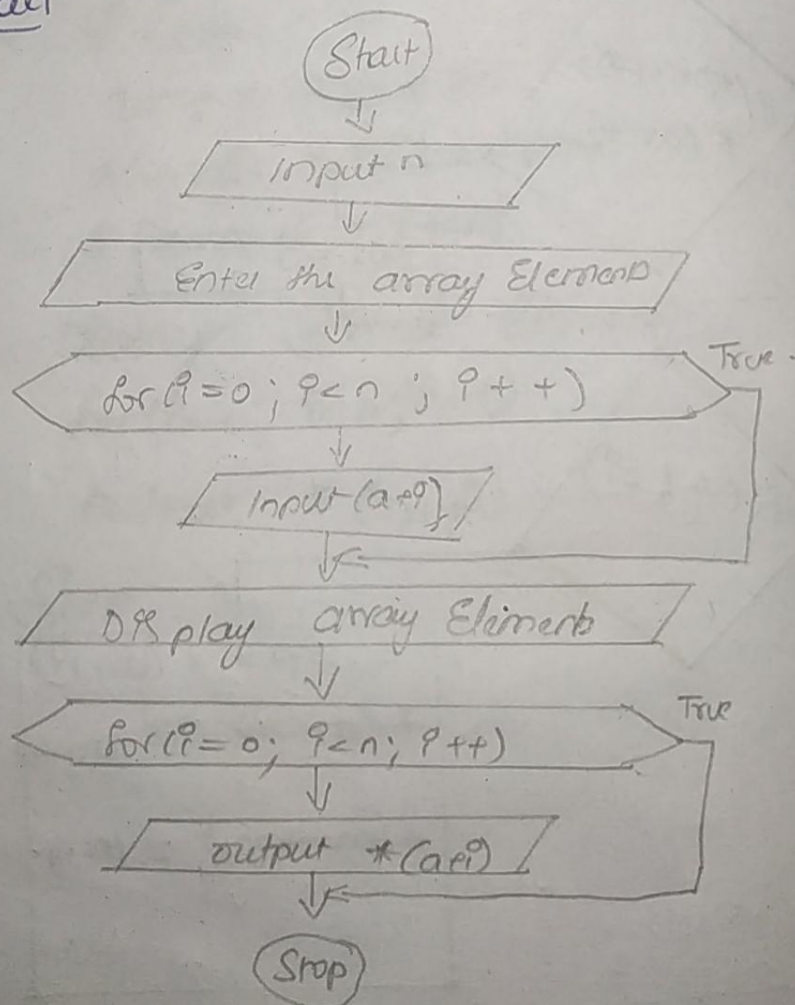 Start
Input n
Enter the array Elements
True
for(i=0; i<n; i++)
Input (a+i)
Display array Elements
True
for(i=0; i<n; i++)
output *(a+i)
Stop